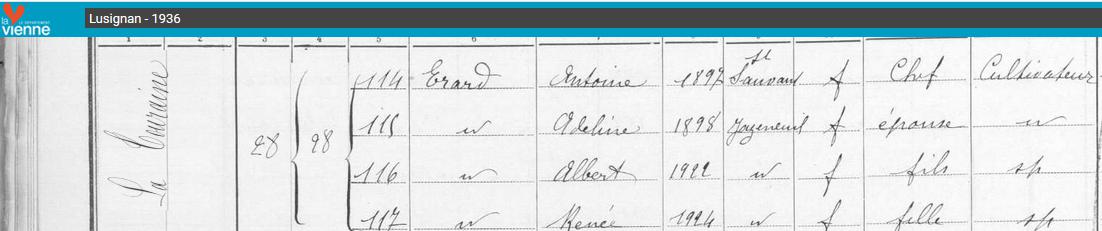 la vienne LE DÉPARTEMENT
Lusignan - 1936
1 2 3 4 5 6 7 8
La Touraine
28 28 114 Erard Antoine 1897 St Sauvant f Chef Cultivateur
115 " Adeline 1898 Jazeneuil f épouse "
116 " Albert 1922 " f fils sp
117 " Renée 1924 " f fille sp